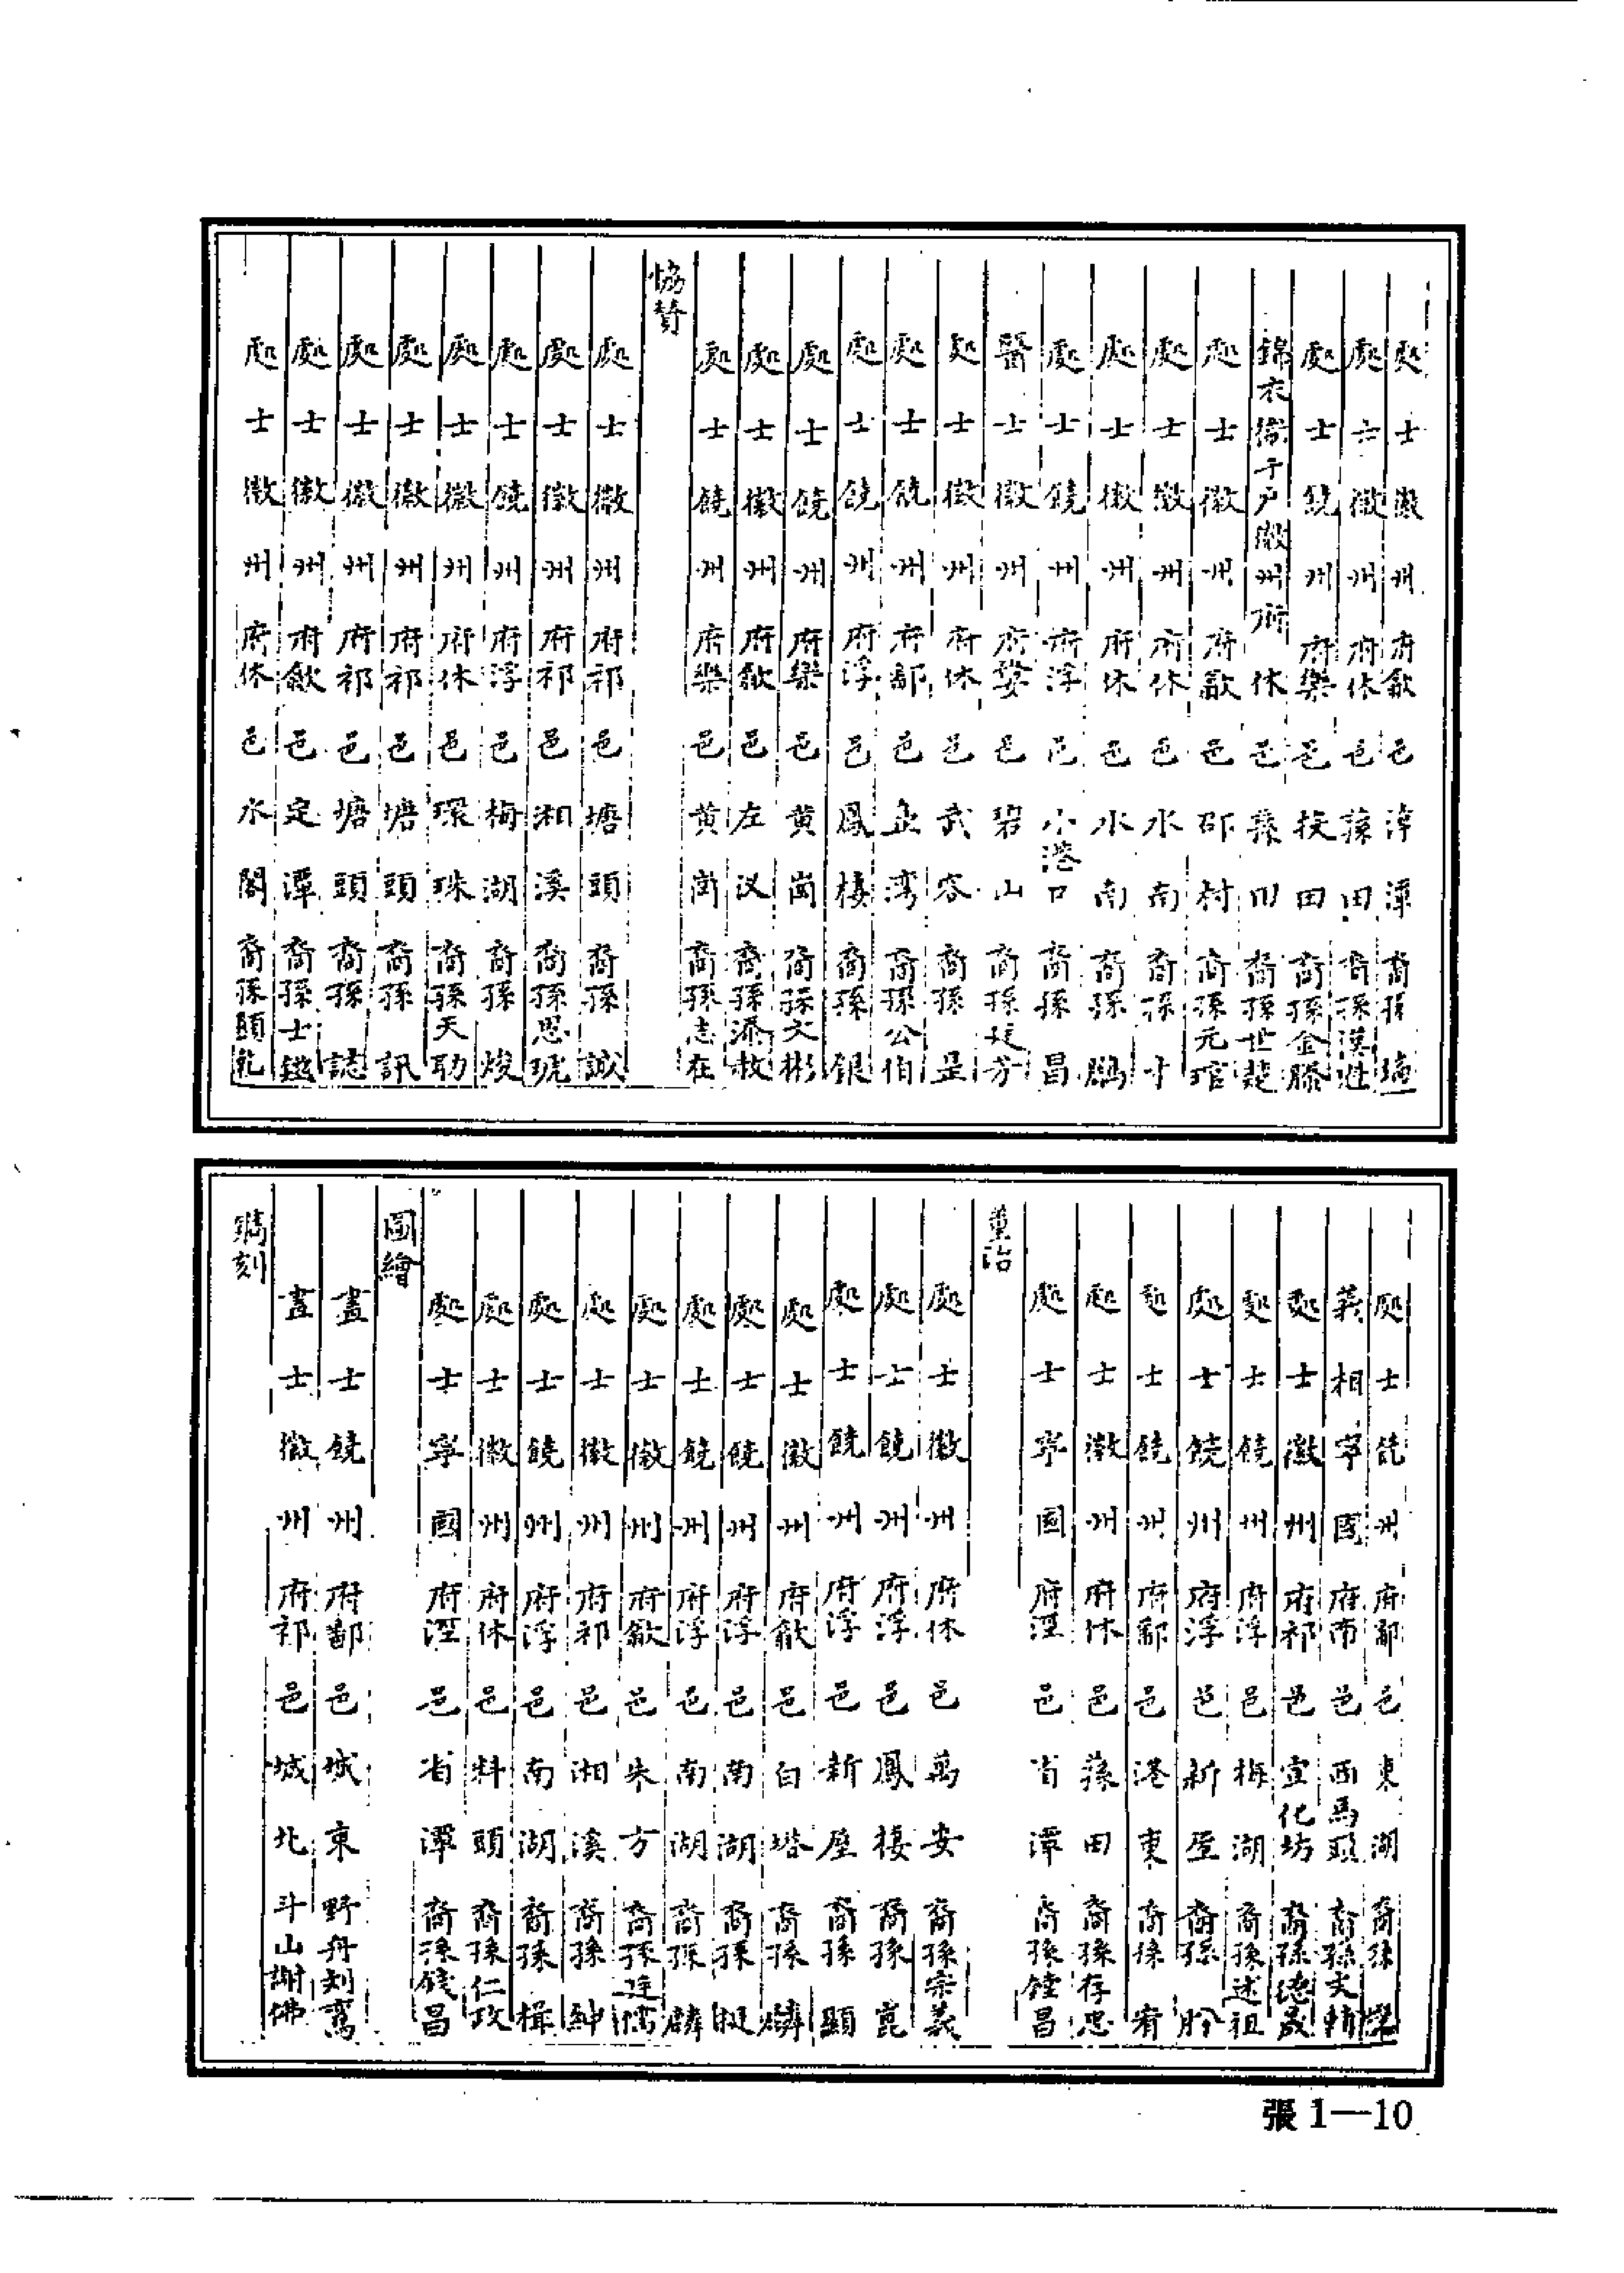 處士徽州府歙邑漳潭裔孫
處士徽州府休邑蓀田裔孫漢進
處士饒州府樂邑技田裔孫金滕
錦衣衛千戶徽州府休邑蓀田裔孫世楚
處士徽州府歙邑邵村裔孫元琯
處士徽州府休邑水南裔孫才
處士徽州府休邑水南裔孫鵬
處士饒州府浮邑小港口裔孫昌
醫士徽州府婺邑碧山裔孫廷芳
處士徽州府休邑武容裔孫昰
處士饒州府鄱邑企湾裔孫公伯
處士饒州府浮邑鳳棲裔孫銀
處士饒州府樂邑黃崗裔孫文彬
處士徽州府歙邑左汊裔孫添救
處士饒州府樂邑黃崗裔孫志在
協贊
處士徽州府祁邑塘頭裔孫誠
處士徽州府祁邑湘溪裔孫思琥
處士饒州府浮邑梅湖裔孫焌
處士徽州府休邑環珠裔孫天助
處士徽州府祁邑塘頭裔孫訊
處士徽州府祁邑塘頭裔孫誌
處士徽州府歙邑定潭裔孫士鑑
處士徽州府休邑水閣裔孫頤乾
處士饒州府鄱邑東湖裔孫
義相寧國府南邑西馬頭裔孫文輔
處士徽州府祁邑宣化坊裔孫德晟
處士饒州府浮邑梅湖裔孫述祖
處士饒州府浮邑新屋裔孫肸
處士饒州府鄱邑港東裔孫宥
處士徽州府休邑蓀田裔孫存忠
處士寧國府涇邑省潭裔孫鏜昌
董治
處士徽州府休邑萬安裔孫宗義
處士饒州府浮邑鳳棲裔孫崑
處士饒州府浮邑新屋裔孫顯
處士徽州府歙邑白塔裔孫麟
處士饒州府浮邑南湖裔孫梃
處士饒州府浮邑南湖裔孫麟
處士徽州府歙邑朱方裔孫廷儒
處士徽州府祁邑湘溪裔孫紳
處士饒州府浮邑南湖裔孫楫
處士徽州府休邑料頭裔孫仁政
處士寧國府涇邑省潭裔孫錢昌
圖繪
畫士饒州府鄱邑城東野舟刘寓
畫士徽州府祁邑城北斗山謝佛
鐫刻
張1—10